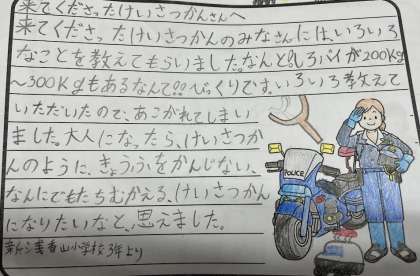 来てくださったけいさつかんさんへ
来てくださったけいさつかんのみなさんには、いろいろ
なことを教えてもらいました。なんと!!しろバイが200kg
〜300kgもあるなんて!!びっくりです。いろいろ教えて
いただいたので、あこがれてしまい
ました。大人になったら、けいさつか
んのように、きょうふをかんじない、
なんにでもたちむかえる、けいさつかん
になりたいなと、思えました。
新浅香山小学校3年より
POLICE